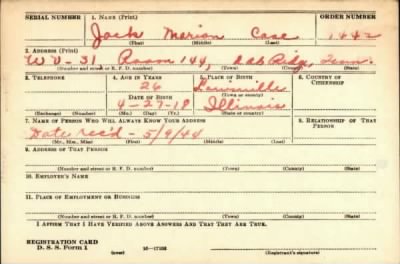 SERIAL NUMBER 1. NAME (Print) ORDER NUMBER
Jack Marion Case 1442
(First) (Middle) (Last)
2. ADDRESS (Print)
W D-31, Room 144, Oak Ridge, Tenn.
(Number and street or R. F. D. number) (Town) (County) (State)
3. TELEPHONE 4. AGE IN YEARS 5. PLACE OF BIRTH 6. COUNTRY OF CITIZENSHIP
26
DATE OF BIRTH (Town or county)
4-27-18 Illinois
(Exchange) (No.) (Mo.) (Day) (Yr.) (State or country)
7. NAME OF PERSON WHO WILL ALWAYS KNOW YOUR ADDRESS 8. RELATIONSHIP OF THAT PERSON
Date rec'd - 5/9/44
(Mr., Mrs., Miss) (First) (Middle) (Last)
9. ADDRESS OF THAT PERSON
(Number and street or R. F. D. number) (Town) (County) (State)
10. EMPLOYER'S NAME
11. PLACE OF EMPLOYMENT OR BUSINESS
(Number and street or R. F. D. number) (Town) (County) (State)
I AFFIRM THAT I HAVE VERIFIED ABOVE ANSWERS AND THAT THEY ARE TRUE.
REGISTRATION CARD
D. S. S. Form 1 (over) (Registrant's signature)